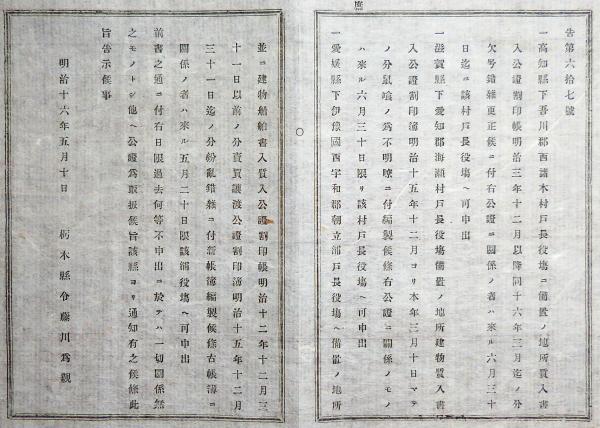 告第六拾七號
一高知縣下吾川郡西諸木村戸長役塲ニ備置ノ地所質入書
入公證割印帳明治三年十二月以降同十六年三月迄ノ分
欠号錯雜更正候ニ付右公證ニ關係ノ者ハ來ル六月三十
日迄ニ該村戸長役塲ヘ可申出
一滋賀縣下愛知郡海瀬村戸長役塲備置ノ地所建物質入書
入公證割印簿明治十五年十二月ヨリ本年三月十日マテ
ノ分鼠喰ノ爲不明瞭ニ付編製候條右公證ニ關係ノモノ
ハ來ル六月三十日限リ該村戸長役塲ヘ可申出
一愛媛縣下伊豫國西宇和郡朝立浦戸長役塲ヘ備置ノ地所
並ニ建物船舶書入質入公證割印帳明治十二年十二月三
十一日以前ノ分賣買讓渡公證割印簿明治十五年十二月
三十一日迄ノ分紛亂錯雜ニ付新帳簿編製候條古帳簿ニ
關係ノ者ハ來ル五月二十日限該浦役塲ヘ可申出
前書之通ニ付右日限過去何等不申出ニ於テハ一切關係無
之モノトシ他ヘ公證爲取扱候旨該縣ヨリ通知有之候條此
旨告示候事
明治十六年五月十日　栃木縣令藤川爲親